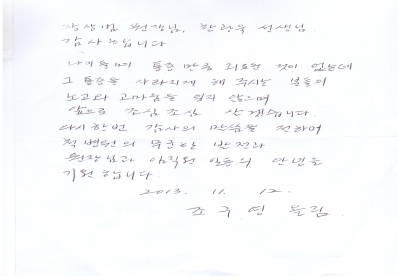 장상범 원장님, 한광욱 선생님
감사드립니다.
나이들며 통증 만큼 괴로운 것이 없는데
그 통증을 사라지게 해 주시는 분들의
노고와 고마움을 잊지 않으며
앞으로 조심 조심 살겠습니다.
다시한번 감사의 말씀을 전하며
척 병원의 무궁한 발전과
원장님과 임직원 일동의 안녕을
기원합니다.
2013. 11. 12.
조구연 드림